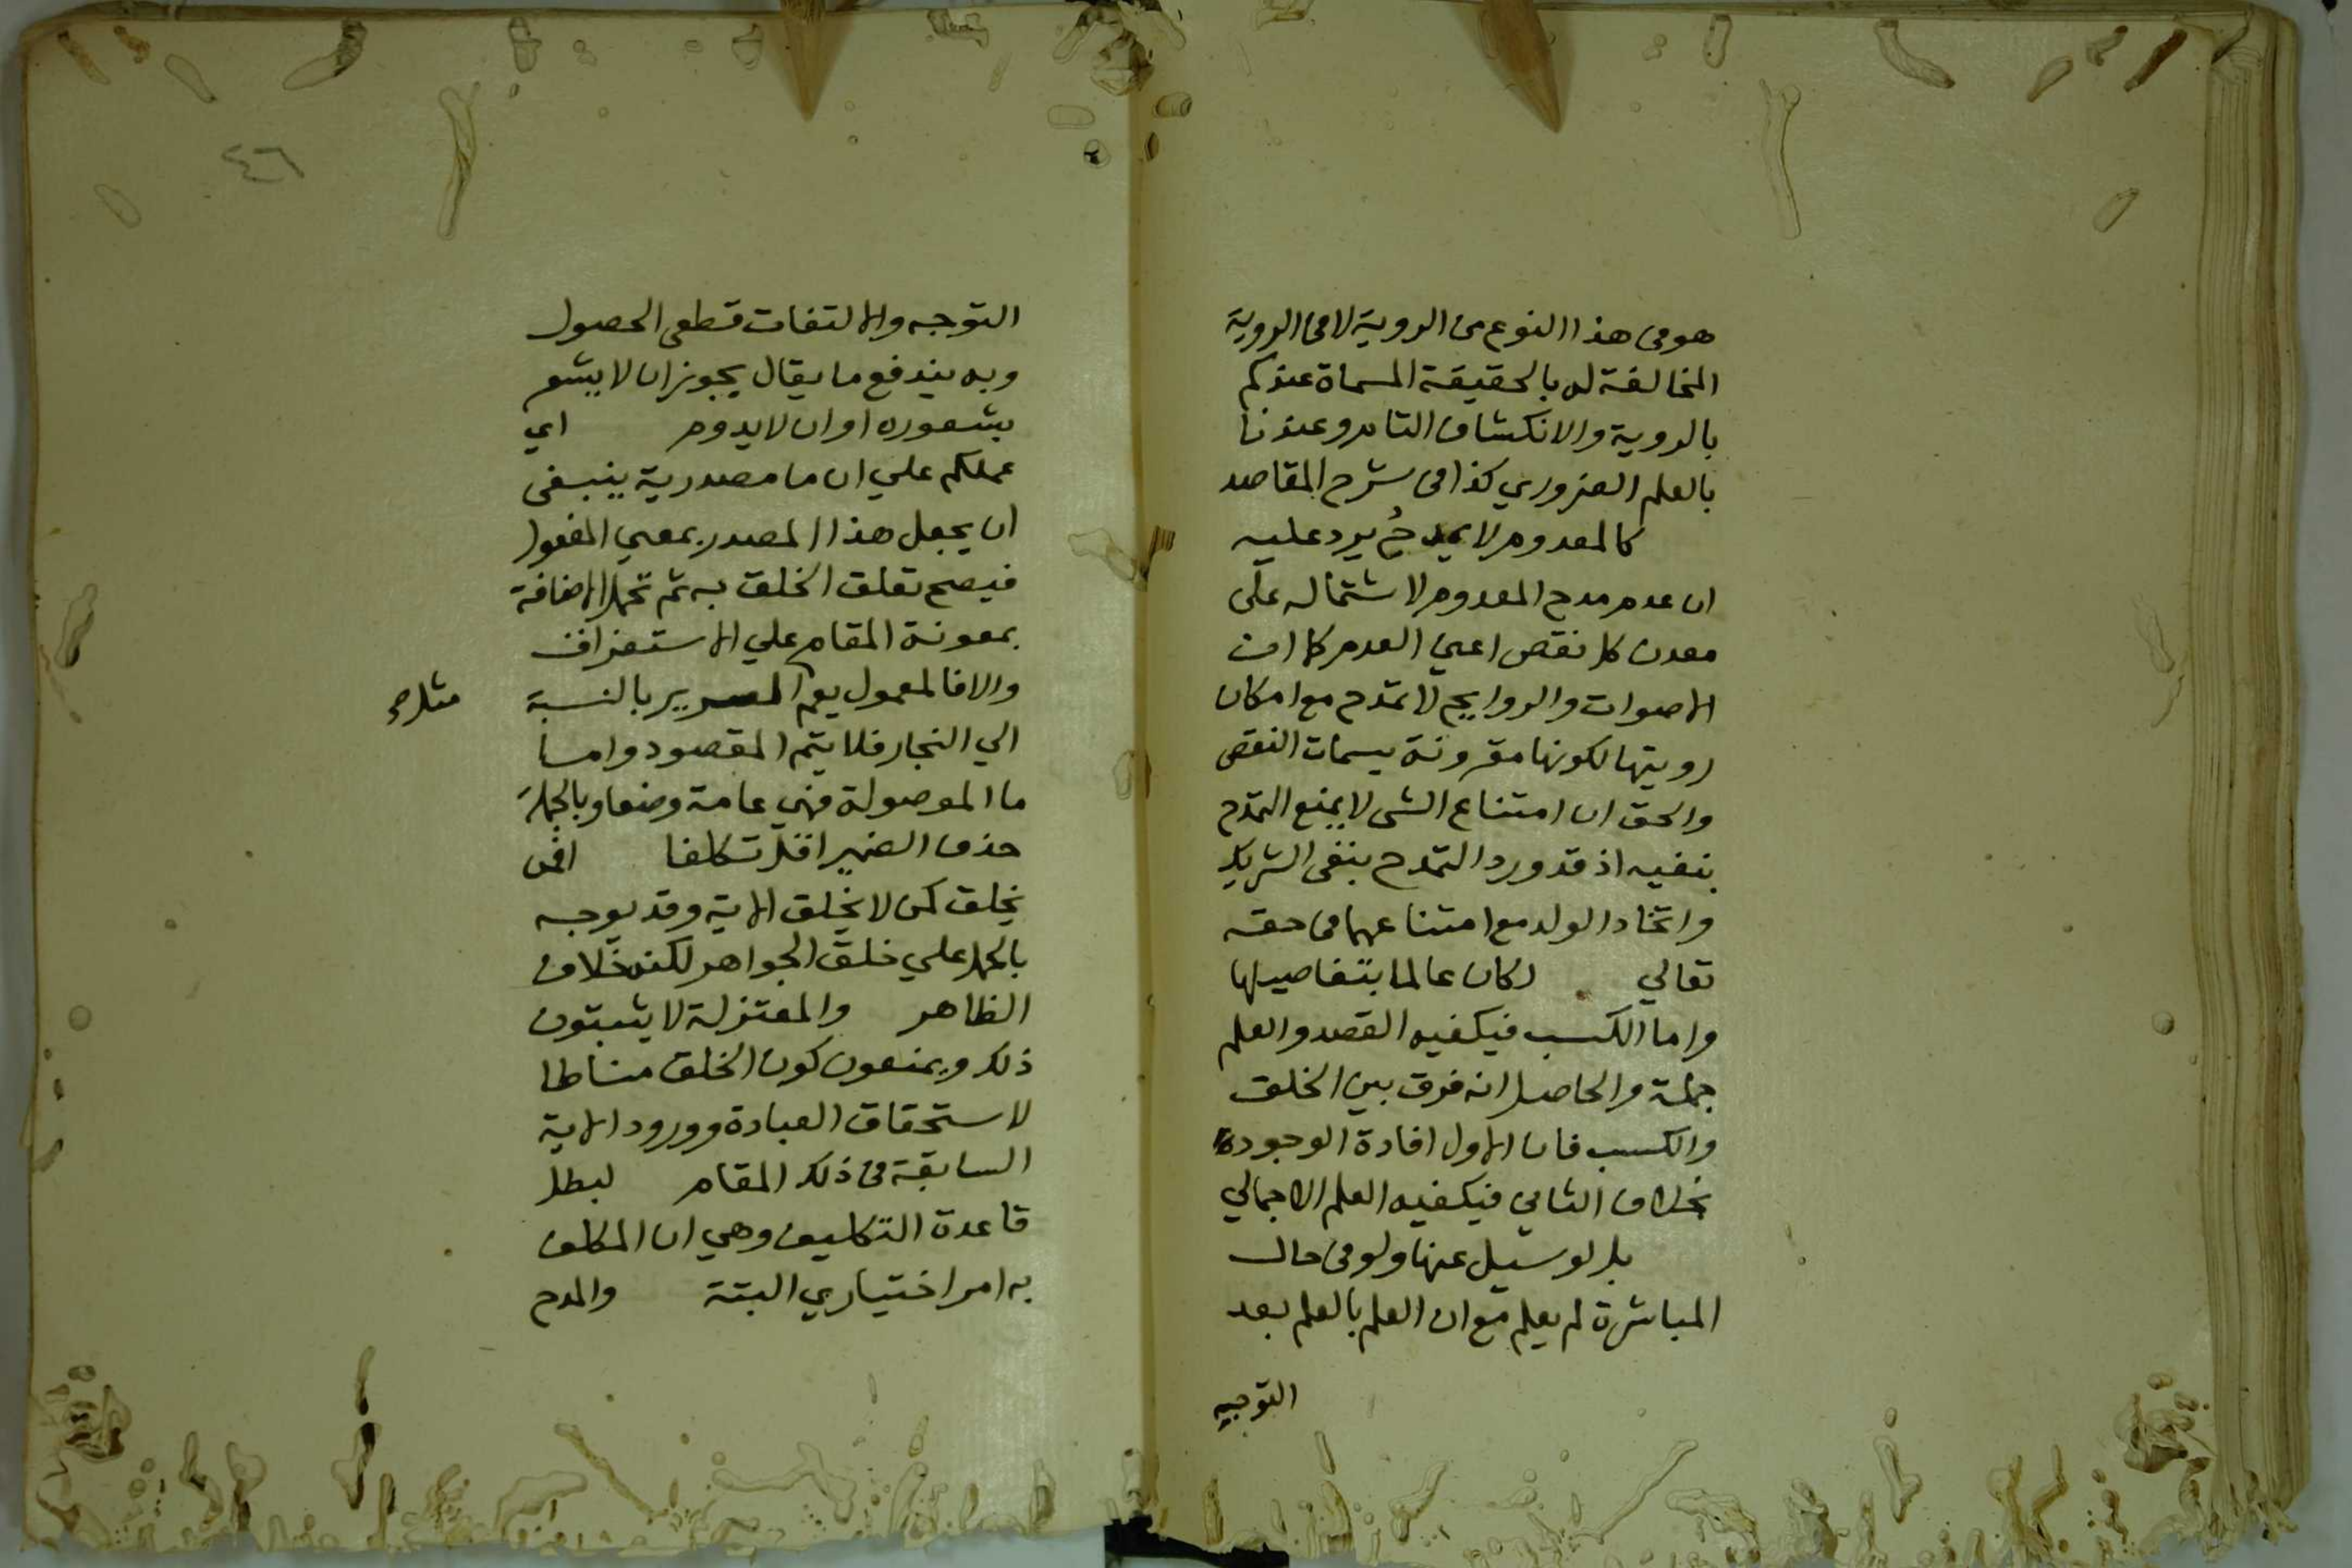 هو في هذا النوع من الروية لا في الروية
المخالفة له بالحقيقة المسماة عندكم
بالروية والانكشاف التام وعندنا
بالعلم الضروري كذا في شرح المقاصد
كالمعدوم لا يمدح يرد عليه
ان عدم مدح المعدوم لاشتماله على
معدن كل نقص اعني العدم كما ان
الاصوات والروايح لا تمدح مع امكان
رويتها لكونها مقرونة بسمات النقص
والحق ان امتناع الشي لا يمنع التمدح
بنفيه اذ قد ورد التمدح بنفي الشريك
واتخاد الولد مع امتناعهما في حقه
تعالي لكان عالما بتفاصيلها
واما الكسب فيكفيه القصد والعلم
جملة والحاصل انه فرق بين الخلق
والكسب فان الاول افادة الوجود
بخلاف الثاني فيكفيه العلم الاجمالي
بل لو سيل عنها ولو في حال
المباشرة لم يعلم مع ان العلم بالعلم بعد
التوجيه
٤٦
التوجه والالتفات قطعي الحصول
وبه يندفع ما يقال يجوز ان لا يشعر
بشعوره او ان لا يدوم اي
عملكم علي ان ما مصدرية ينبغي
ان يجعل هذا المصدر بمعني المفعول
فيصح تعلق الخلق به ثم تحمل الاضافة
بمعونة المقام علي الاستغراق
والا فالمعمول يعم السرير بالنسبة
مثلا صح
الي النجار فلا يتم المقصود واما
ما الموصولة فهي عامة وضعا وبالجملة
حذف الضمير اقل تكلفا افمن
يخلق كمن لا يخلق الاية وقد يوجه
بالحمل علي خلق الجواهر لكنه خلاف
الظاهر والمعتزلة لا يثبتون
ذلك ويمنعون كون الخلق مناطا
لاستحقاق العبادة وورود الاية
السابقة في ذلك المقام لبطل
قاعدة التكليف وهي ان المكلف
به امر اختياري البتة والمدح